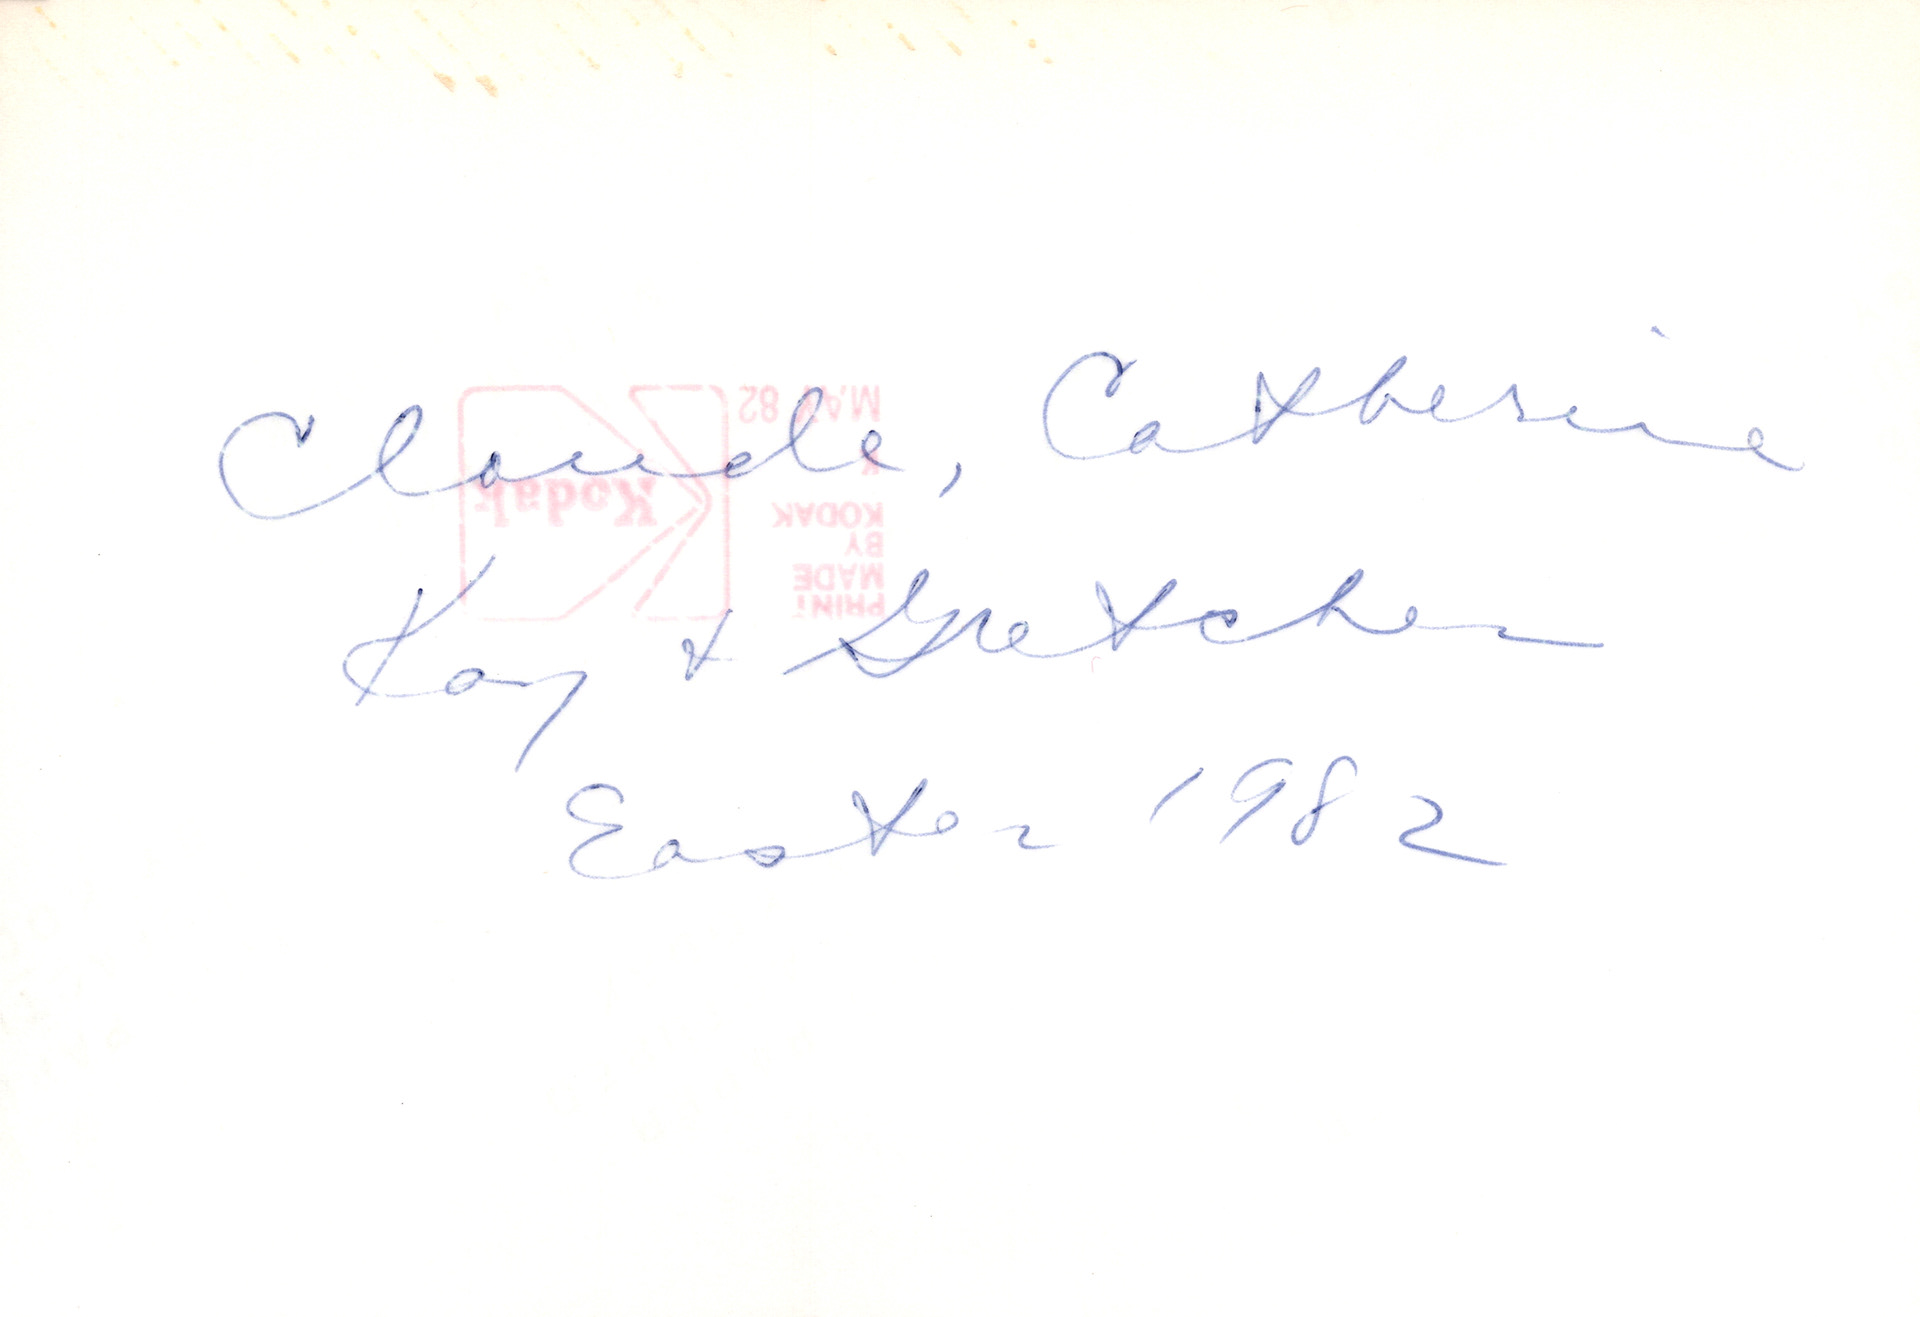 Claude, Catherine
Kay & Gretchen
Easter 1982
PRINT
MADE
BY
KODAK
K
MAY 82
Kodak